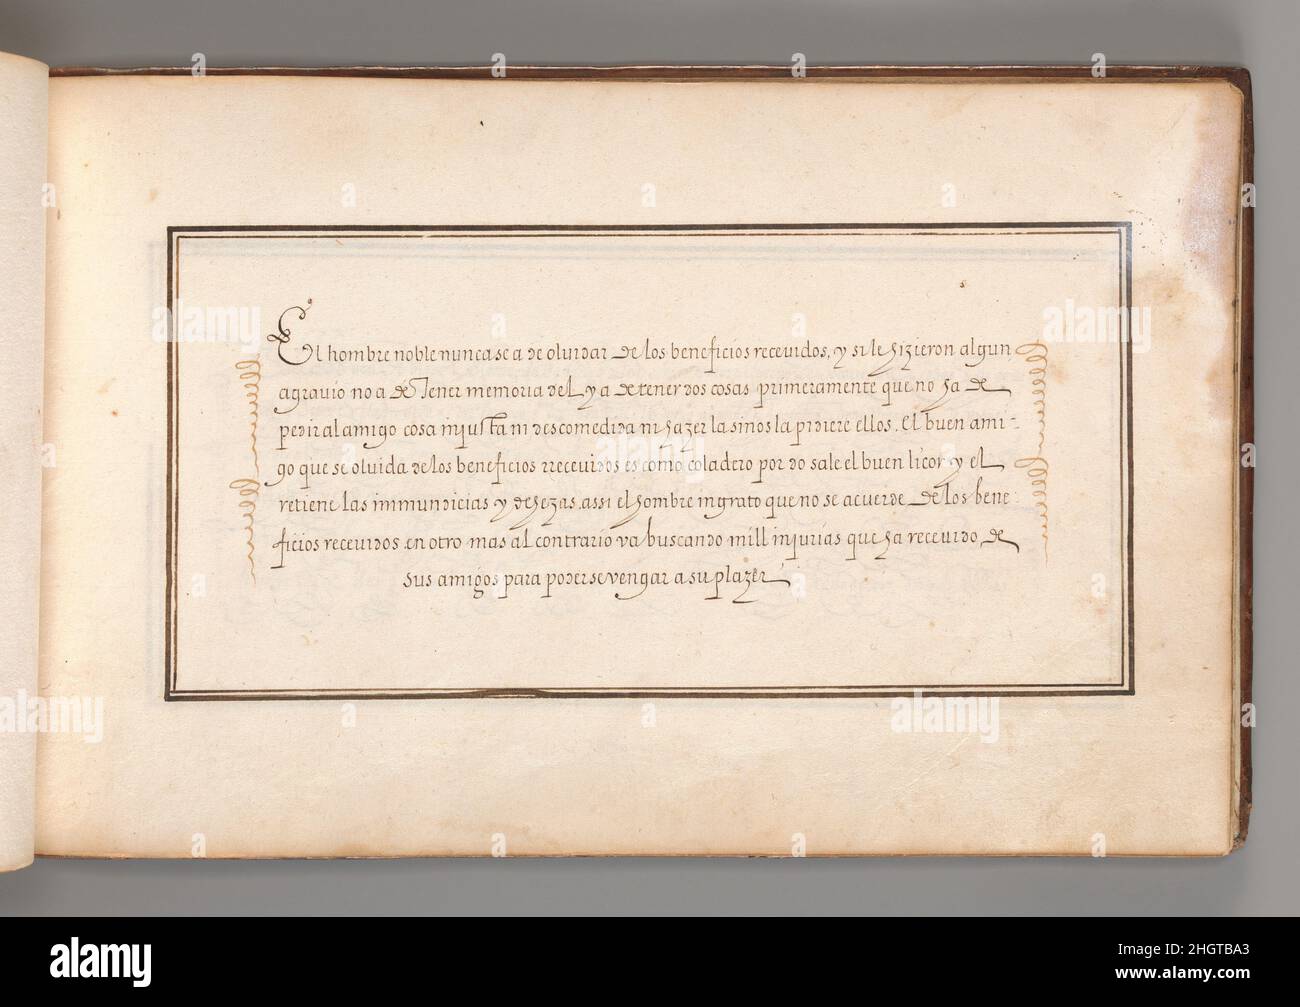 El hombre noble nunca se a de oluidar de los beneficios receuidos, y si le hizieron algun
agrauio no a de Tener memoria del y a de tener dos cosas primeramente que no ha de
pedir al amigo cosa injusta ni descomedida ni hazer la si nos la pidiere ellos. El buen ami-
go que se oluida de los beneficios rreceuidos es como coladero por do sale el buen licor y el
retiene las immundicias y dehezas. assi el hombre ingrato que no se acuerde de los bene-
ficios receuidos en otro mas al contrario va buscando mill injurias que ha receuido de
sus amigos para poderse vengar a su plazer
alamy
Image ID: 2HGTBA3
www.alamy.com